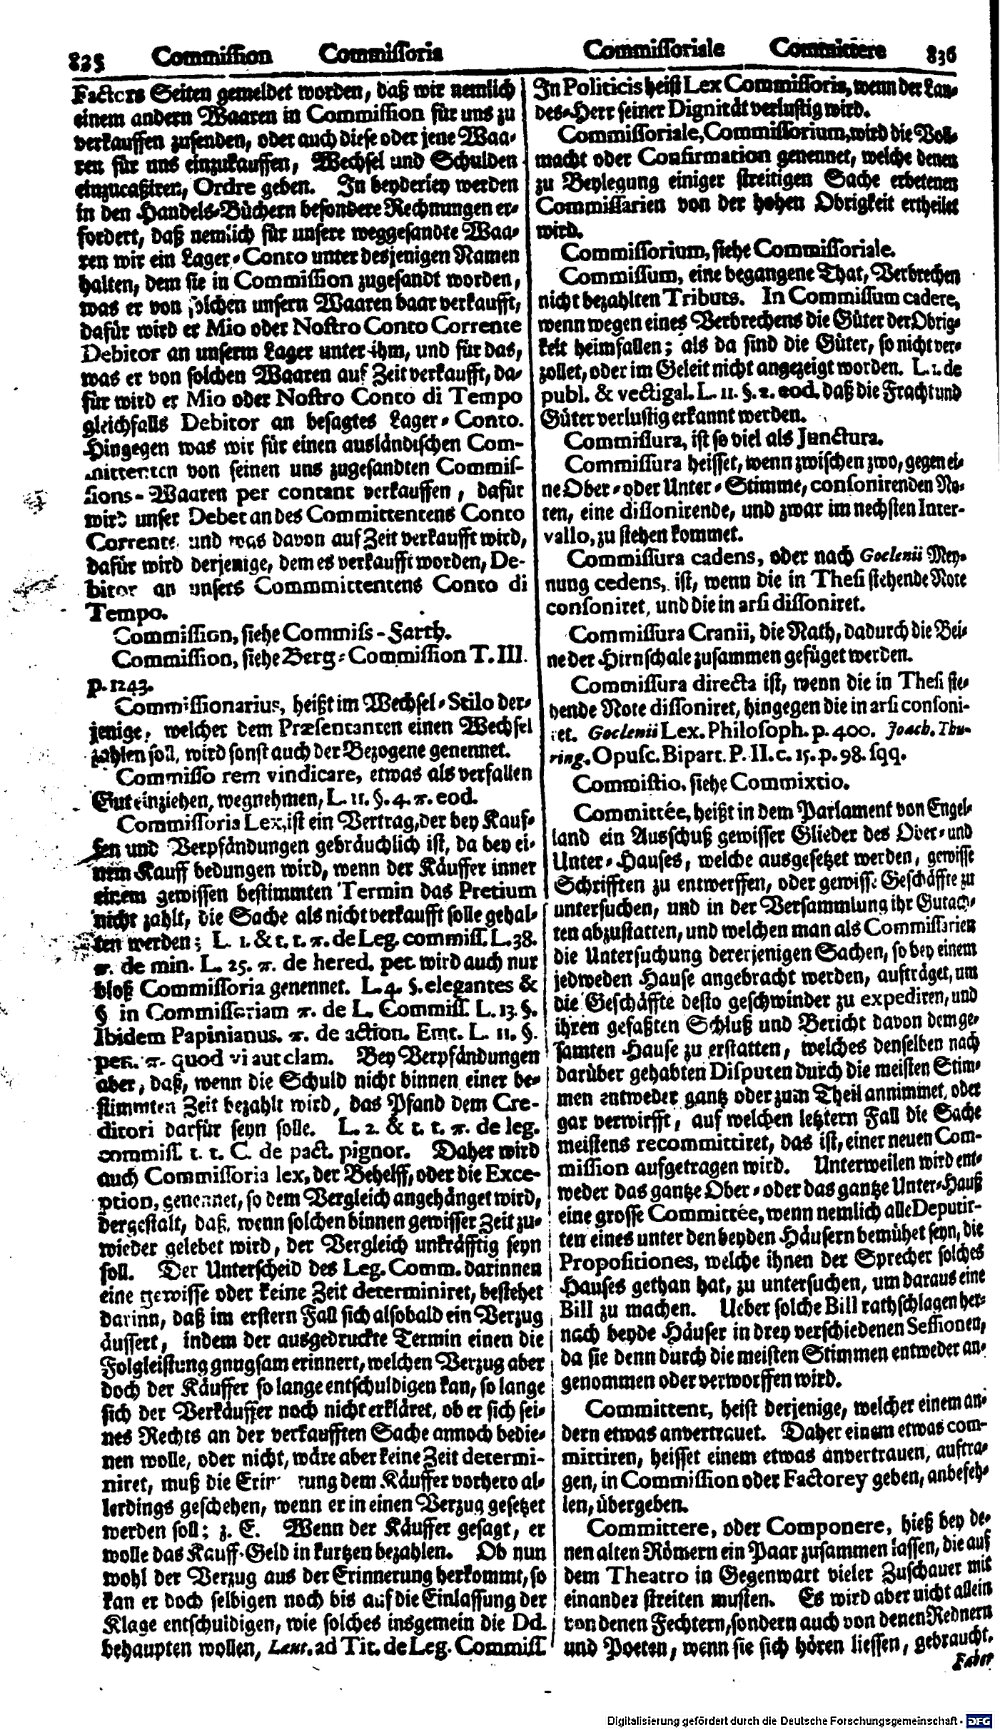 835 Commission Commissoria
Commissoriale Committere 836
Factors Seiten gemeldet worden, daß wir nemlich
einem andern Waaren in Commission für uns zu
verkauffen zusenden, oder auch diese oder jene Waa-
ren für uns einzukauffen, Wechsel und Schulden
einzucaßiren, Ordre geben. In beyderley werden
in den Handels-Büchern besondere Rechnungen er-
fordert, daß nemlich für unsere weggesandte Waa-
ren wir ein Lager-Conto unter desjenigen Namen
halten, dem sie in Commission zugesandt worden,
was er von solchen unsern Waaren baar verkaufft,
dafür wird er Mio oder Nostro Conto Corrente
Debitor an unserm Lager unter ihm, und für das,
was er von solchen Waaren auf Zeit verkaufft, da-
für wird er Mio oder Nostro Conto di Tempo
gleichfalls Debitor an besagtes Lager-Conto.
Hingegen was wir für einen ausländischen Com-
mittenten von seinen uns zugesandten Commis-
sions-Waaren per contant verkauffen, dafür
wird unser Debet an des Committentens Conto
Corrente, und was davon auf Zeit verkaufft wird,
dafür wird derjenige, dem es verkaufft worden, De-
bitor an unsers Commmittentens Conto di
Tempo.
Commission, siehe Commiss-Farth.
Commission, siehe Berg-Commission T. III.
p. 1243.
Commissionarius, heißt im Wechsel-Stilo der-
jenige, welcher dem Præsentanten einen Wechsel
zahlen soll, wird sonst auch der Bezogene genennet.
Commisso rem vindicare, etwas als verfallen
Gut einziehen, wegnehmen, L. 11. §. 4. π. eod.
Commissoria Lex, ist ein Vertrag, der bey Kauf-
fen und Verpfändungen gebräuchlich ist, da bey ei-
nem Kauff bedungen wird, wenn der Käuffer inner
einem gewissen bestimmten Termin das Pretium
nicht zahlt, die Sache als nicht verkaufft solle gehal-
ten werden; L. 1. & t. t. π. de Leg. commiss. L. 38.
π. de min. L. 25. π. de hered. pet. wird auch nur
bloß Commissoria genennet. L. 4. §. elegantes &
§ in Commissoriam π. de L. Commiss. L. 13. §.
Ibidem Papinianus. π. de action. Emt. L. 11. §.
pen. π. quod vi aut clam. Bey Verpfändungen
aber, daß, wenn die Schuld nicht binnen einer be-
stimmten Zeit bezahlt wird, das Pfand dem Cre-
ditori darfür seyn solle. L. 2. & t. t. π. de leg.
commiss. t. t. C. de pact. pignor. Daher wird
auch Commissoria lex, der Behelff, oder die Exce-
ption, genennet, so dem Vergleich angehänget wird,
dergestalt, daß, wenn solchen binnen gewisser Zeit zu-
wieder gelebet wird, der Vergleich unkräfftig seyn
soll. Der Unterscheid des Leg. Comm. darinnen
eine gewisse oder keine Zeit determiniret, bestehet
darinn, daß im erstern Fall sich alsobald ein Verzug
äussert, indem der ausgedruckte Termin einen die
Folgleistung gnugsam erinnert, welchen Verzug aber
doch der Käuffer so lange entschuldigen kan, so lange
sich der Verkäuffer noch nicht erkläret, ob er sich sei-
nes Rechts an der verkaufften Sache annoch bedie-
nen wolle, oder nicht, wäre aber keine Zeit determi-
niret, muß die dem Käuffer vorhero al-
lerdings geschehen, wenn er in einen Verzug gesetzet
werden soll; z. E. Wenn der Käuffer gesagt, er
wolle das Kauff-Geld in kurtzen bezahlen. Ob nun
wohl der Verzug aus der Erinnerung herkommt, so
kan er doch selbigen noch bis auf die Einlassung der
Klage entschuldigen, wie solches insgemein die Dd.
behaupten wollen, Laut. ad Tit. de Leg. Commiss.
In Politicis heist Lex Commissoria, wenn der Lan-
des-Herr seiner Dignität verlustig wird.
Commissoriale, Commissorium, wird die Voll-
macht oder Confirmation genennet, welche denen
zu Beylegung einiger streitigen Sache erbetenen
Commissarien von der hohen Obrigkeit ertheilet
wird.
Commissorium, siehe Commissoriale.
Commissum, eine begangene That, Verbrechen
nicht bezahlten Tributs. In Commissum cadere,
wenn wegen eines Verbrechens die Güter der Obrig-
keit heimfallen; als da sind die Güter, so nicht ver-
zollet, oder im Geleit nicht angezeigt worden. L. 1. de
publ. & vectigal. L. 11. §. 2. eod. daß die Fracht und
Güter verlustig erkannt werden.
Commissura, ist so viel als Junctura.
Commissura heisset, wenn zwischen zwo, gegen ei-
ne Ober- oder Unter-Stimme, consonirenden No-
ten, eine dissonirende, und zwar im nechsten Inter-
vallo, zu stehen kommet.
Commissura cadens, oder nach Goclenii Mey-
nung cedens, ist, wenn die in Thesi stehende Note
consoniret, und die in arsi dissoniret.
Commissura Cranii, die Nath, dadurch die Bei-
ne der Hirnschale zusammen gefüget werden.
Commissura directa ist, wenn die in Thesi ste-
hende Note dissoniret, hingegen die in arsi consoni-
ret. Goclenii Lex. Philosoph. p. 400. Joach. Thu-
ring. Opusc. Bipart. P. II. c. 15. p. 98. sqq.
Commistio, siehe Commixtio.
Committée, heißt in dem Parlament von Engel-
land ein Ausschuß gewisser Glieder des Ober- und
Unter-Hauses, welche ausgesetzet werden, gewisse
Schrifften zu entwerffen, oder gewisse Geschäffte zu
untersuchen, und in der Versammlung ihr Gutach-
ten abzustatten, und welchen man als Commissarien
die Untersuchung dererjenigen Sachen, so bey einem
jedweden Hause angebracht werden, aufträget, um
die Geschäffte desto geschwinder zu expediren, und
ihren gefaßten Schluß und Bericht davon dem ge-
samten Hause zu erstatten, welches denselben nach
darüber gehabten Disputen durch die meisten Stim-
men entweder gantz oder zum Theil annimmet, oder
gar verwirfft, auf welchen letztern Fall die Sache
meistens recommittiret, das ist, einer neuen Com-
mission aufgetragen wird. Unterweilen wird ent-
weder das gantze Ober- oder das gantze Unter-Hauß
eine grosse Committée, wenn nemlich alle Deputir-
ten eines unter den beyden Häusern bemühet seyn, die
Propositiones, welche ihnen der Sprecher solches
Hauses gethan hat, zu untersuchen, um daraus eine
Bill zu machen. Ueber solche Bill rathschlagen her-
nach beyde Häuser in drey verschiedenen Sessionen,
da sie denn durch die meisten Stimmen entweder an-
genommen oder verworffen wird.
Committent, heist derjenige, welcher einem an-
dern etwas anvertrauet. Daher einem etwas com-
mittiren, heisset einem etwas anvertrauen, auftra-
gen, in Commission oder Factorey geben, anbefeh-
len, übergeben.
Committere, oder Componere, hieß bey de-
nen alten Römern ein Paar zusammen lassen, die auf
dem Theatro in Gegenwart vieler Zuschauer mit
einander streiten musten. Es wird aber nicht allein
von denen Fechtern, sondern auch von denen Rednern
und Poeten, wenn sie sich hören liessen, gebraucht.
Faber
Digitalisierung gefördert durch die Deutsche Forschungsgemeinschaft - DFG